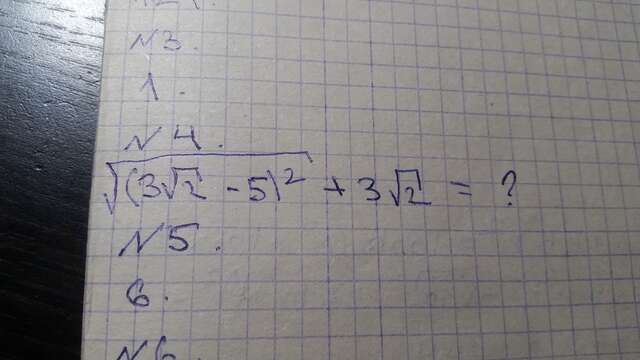 N3.
1.
N4.
√(3√2 - 5)² + 3√2 = ?
N5.
6.
N6.